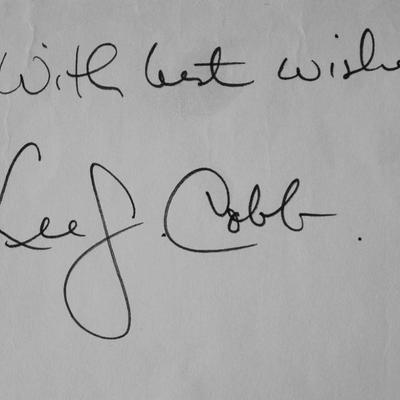 With best wishe
Lee J. Cobb.